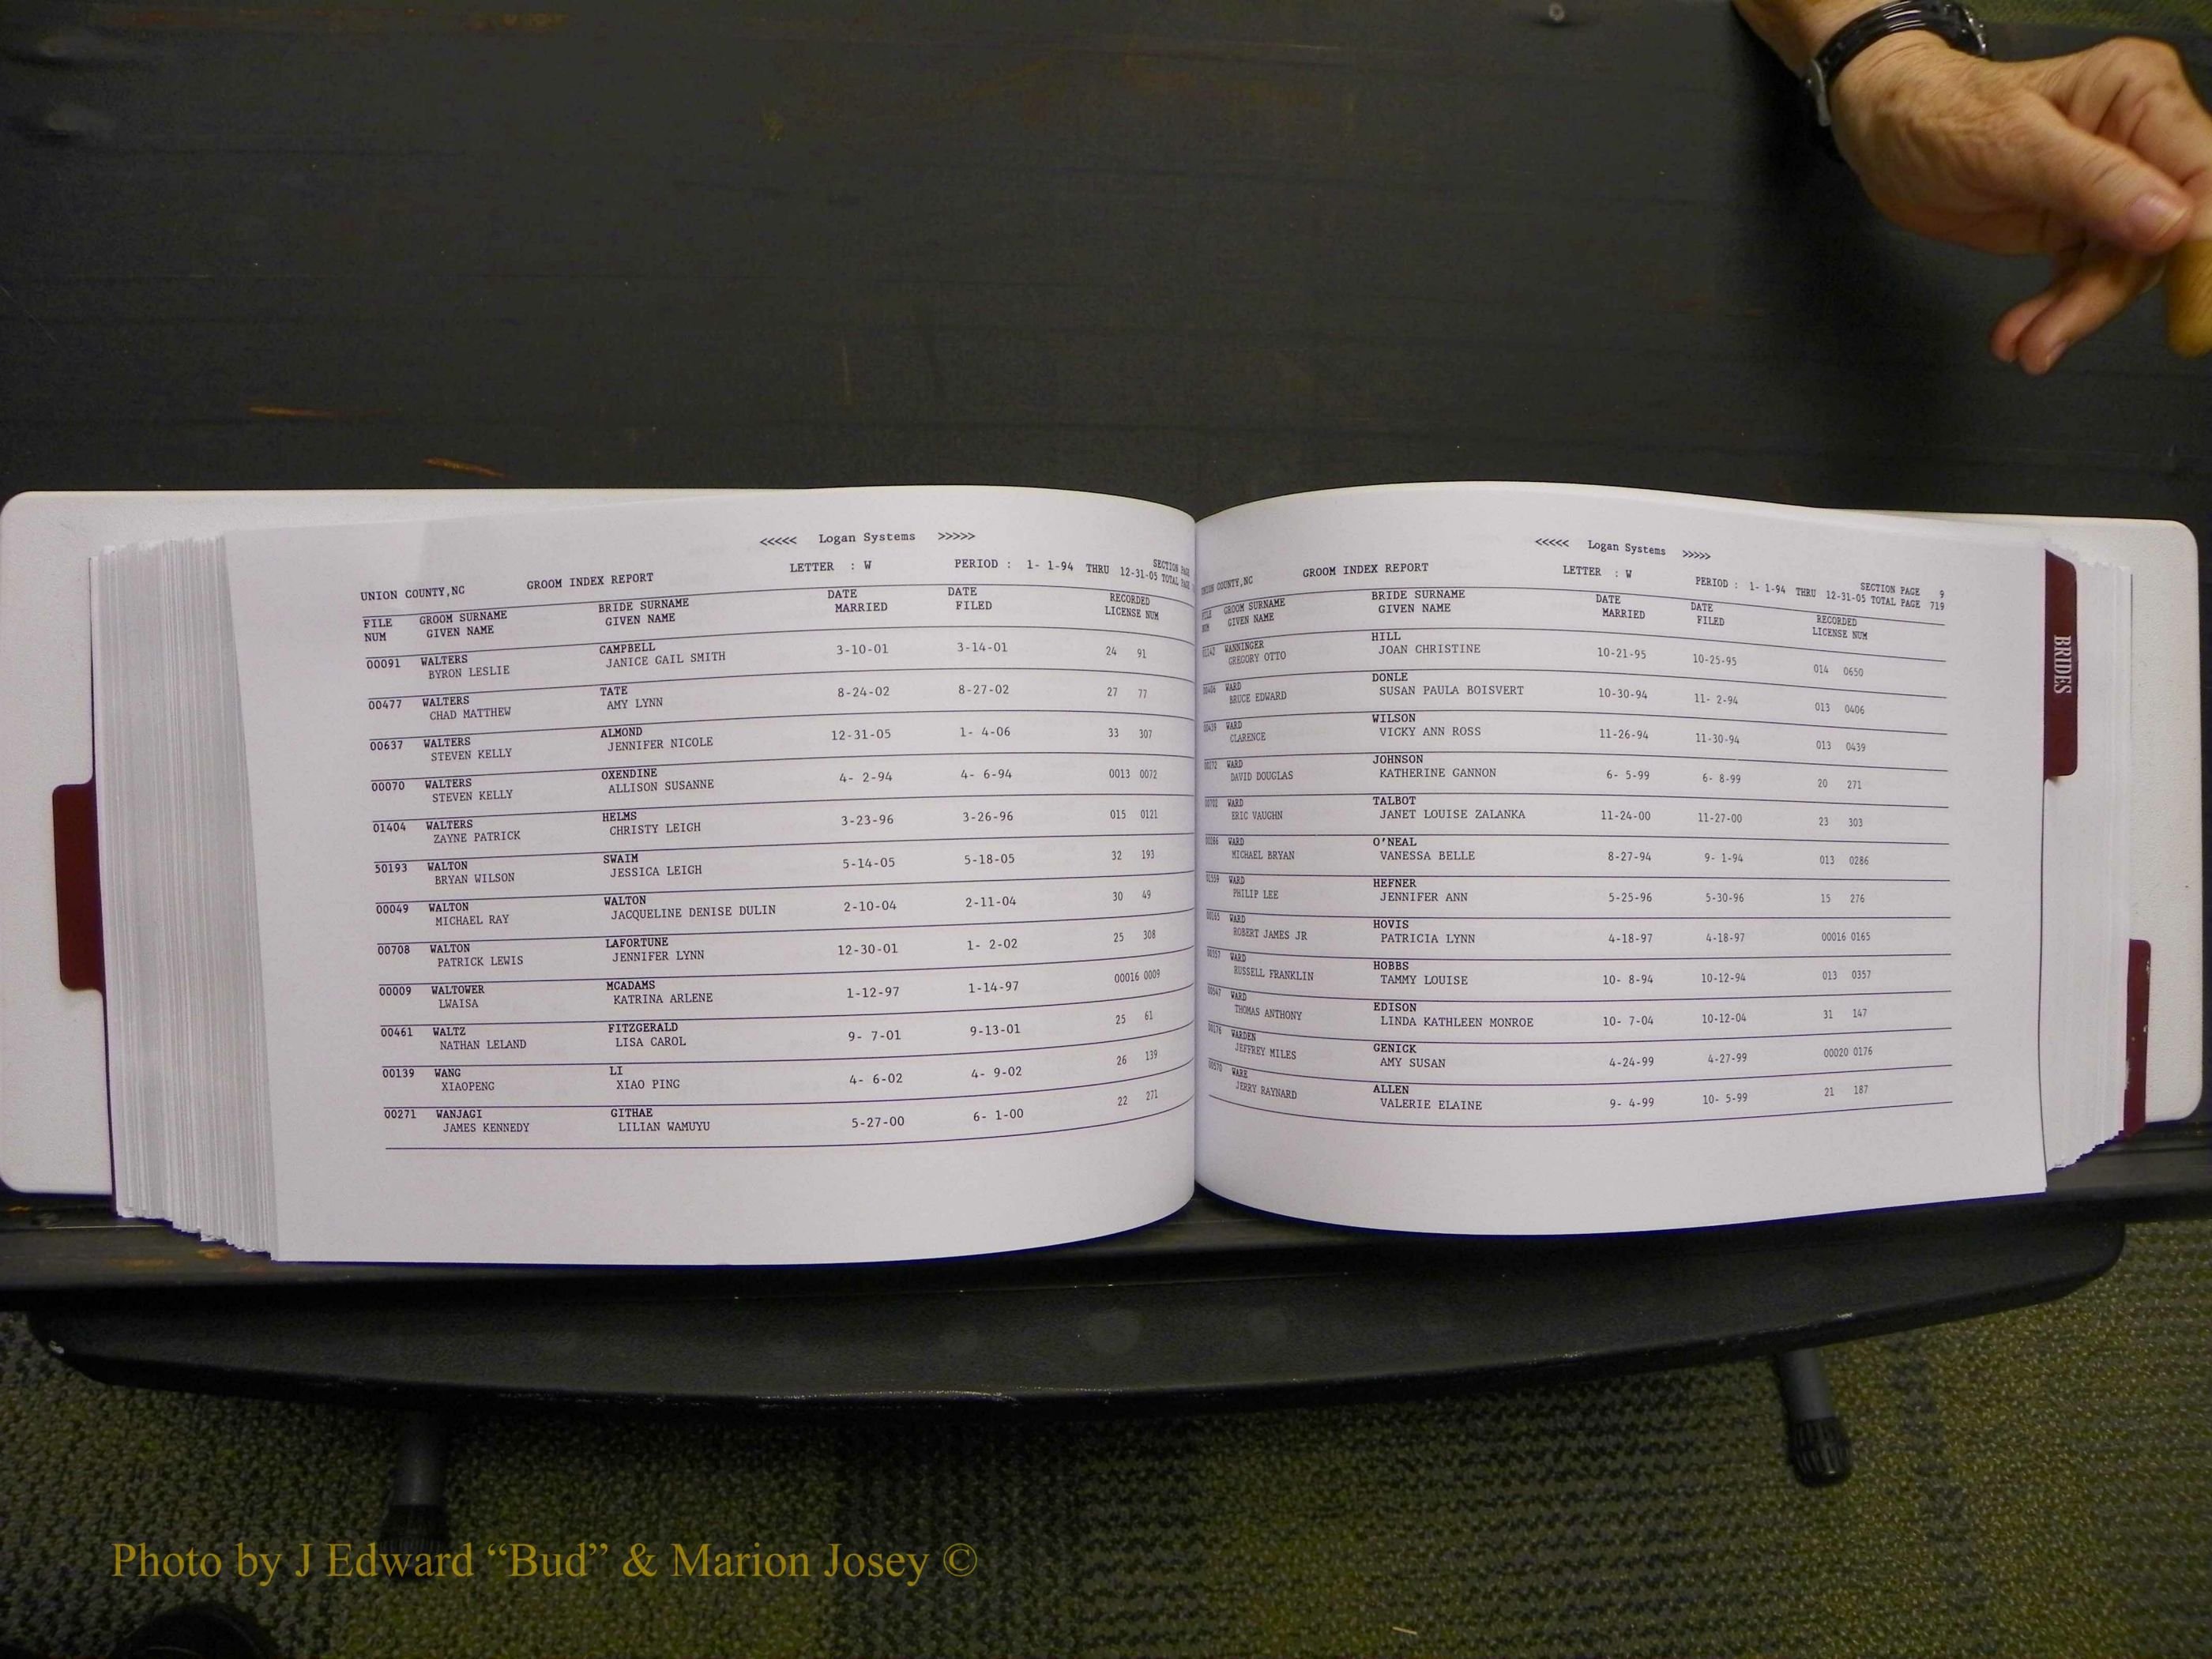 <<<<< Logan Systems >>>>>
UNION COUNTY,NC GROOM INDEX REPORT LETTER : W PERIOD : 1- 1-94 THRU 12-31-05 SECTION PAGE TOTAL PAGE
FILE NUM GROOM SURNAME GIVEN NAME BRIDE SURNAME GIVEN NAME DATE MARRIED DATE FILED RECORDED LICENSE NUM
00091 WALTERS CAMPBELL 3-10-01 3-14-01 24 91
BYRON LESLIE JANICE GAIL SMITH
00477 WALTERS TATE 8-24-02 8-27-02 27 77
CHAD MATTHEW AMY LYNN
00637 WALTERS ALMOND 12-31-05 1- 4-06 33 307
STEVEN KELLY JENNIFER NICOLE
00070 WALTERS OXENDINE 4- 2-94 4- 6-94 0013 0072
STEVEN KELLY ALLISON SUSANNE
01404 WALTERS HELMS 3-23-96 3-26-96 015 0121
ZAYNE PATRICK CHRISTY LEIGH
50193 WALTON SWAIM 5-14-05 5-18-05 32 193
BRYAN WILSON JESSICA LEIGH
00049 WALTON WALTON 2-10-04 2-11-04 30 49
MICHAEL RAY JACQUELINE DENISE DULIN
00708 WALTON LAFORTUNE 12-30-01 1- 2-02 25 308
PATRICK LEWIS JENNIFER LYNN
00009 WALTOWER MCADAMS 1-12-97 1-14-97 00016 0009
LWAISA KATRINA ARLENE
00461 WALTZ FITZGERALD 9- 7-01 9-13-01 25 61
NATHAN LELAND LISA CAROL
00139 WANG LI 4- 6-02 4- 9-02 26 139
XIAOPENG XIAO PING
00271 WANJAGI GITHAE 5-27-00 6- 1-00 22 271
JAMES KENNEDY LILIAN WAMUYU
<<<<< Logan Systems >>>>>
UNION COUNTY,NC GROOM INDEX REPORT LETTER : W PERIOD : 1- 1-94 THRU 12-31-05 SECTION PAGE 9 TOTAL PAGE 719
FILE NUM GROOM SURNAME GIVEN NAME BRIDE SURNAME GIVEN NAME DATE MARRIED DATE FILED RECORDED LICENSE NUM
WANNINGER HILL 10-21-95 10-25-95 014 0650
GREGORY OTTO JOAN CHRISTINE
00406 WARD DONLE 10-30-94 11- 2-94 013 0406
BRUCE EDWARD SUSAN PAULA BOISVERT
00439 WARD WILSON 11-26-94 11-30-94 013 0439
CLARENCE VICKY ANN ROSS
WARD JOHNSON 6- 5-99 6- 8-99 20 271
DAVID DOUGLAS KATHERINE GANNON
WARD TALBOT 11-24-00 11-27-00 23 303
ERIC VAUGHN JANET LOUISE ZALANKA
00286 WARD O'NEAL 8-27-94 9- 1-94 013 0286
MICHAEL BRYAN VANESSA BELLE
01559 WARD HEFNER 5-25-96 5-30-96 15 276
PHILIP LEE JENNIFER ANN
00165 WARD HOVIS 4-18-97 4-18-97 00016 0165
ROBERT JAMES JR PATRICIA LYNN
00357 WARD HOBBS 10- 8-94 10-12-94 013 0357
RUSSELL FRANKLIN TAMMY LOUISE
00547 WARD EDISON 10- 7-04 10-12-04 31 147
THOMAS ANTHONY LINDA KATHLEEN MONROE
00176 WARDEN GENICK 4-24-99 4-27-99 00020 0176
JEFFREY MILES AMY SUSAN
00570 WARE ALLEN 9- 4-99 10- 5-99 21 187
JERRY RAYNARD VALERIE ELAINE
BRIDES
Photo by J Edward “Bud” & Marion Josey ©